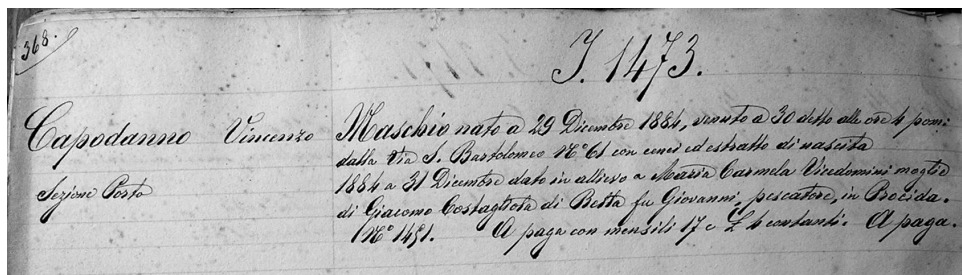 368.
I. 1473.
Capodanno Vincenzo Maschio nato a 29 Dicembre 1884, venuto a 30 detto alle ore 4 pom:
dalla Via S. Bartolomeo N.° 61 con cenci ed estratto di nascita
Sezione Porto 1884 a 31 Dicembre dato in allievo a Maria Carmela Vicedomini moglie
di Giacomo Costagliola di Betta fu Giovanni, pescatore, in Procida.
N.° 1491. A paga con mensili 17 e L 4 contanti. A paga.